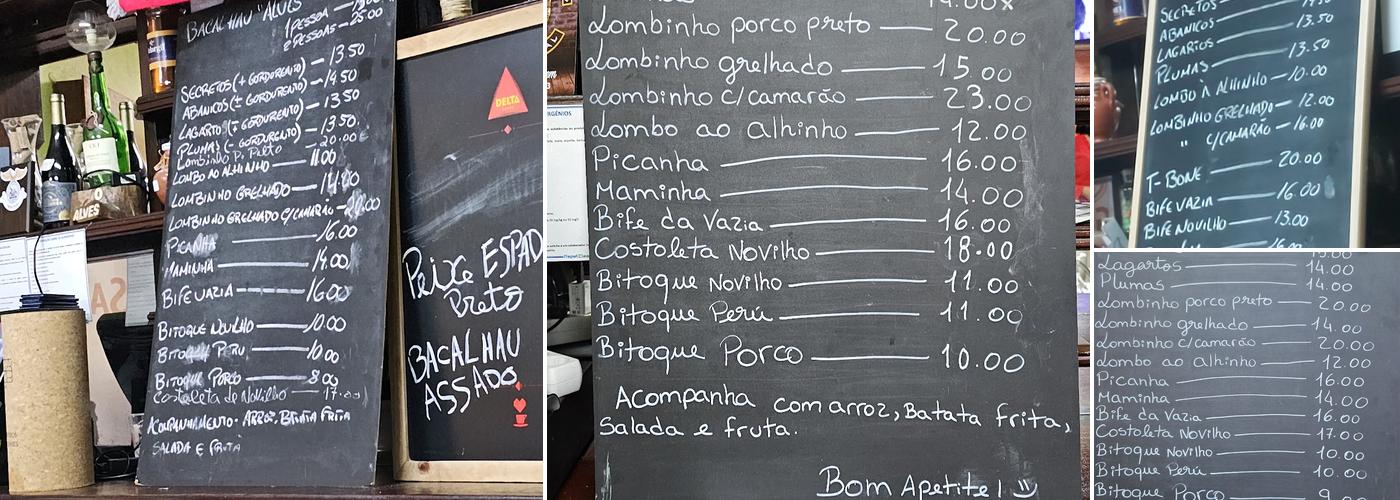 BACALHAU "ALVES"
1 PESSOA —
2 PESSOAS — 25.00
SECRETOS (+ GORDURENTO) — 13.50
ABANICOS (± GORDURENTO) — 14.50
LAGARTO (± GORDURENTO) — 13.50
PLUMAS (- GORDURENTO) — 13.50
Lombinho P. Preto — 20.00
LOMBO AO ALHINHO — 11.00
LOMBINHO GRELHADO —
LOMBINHO GRELHADO C/CAMARÃO —
PICANHA — 16.00
MAMINHA — 14.00
BIFE VAZIA — 16.00
BITOQUE NOVILHO — 10.00
BITOQUE PERU — 10.00
BITOQUE PORCO — 8.00
Costoleta de Novilho — 17.00
ACOMPANHAMENTO - ARROZ, BATATA FRITA
SALADA E FRUTA
ALVES
DELTA
PEIXE ESPADA
PRETO
BACALHAU
ASSADO
14.00
Lombinho porco preto — 20.00
Lombinho grelhado — 15.00
Lombinho c/camarão — 23.00
Lombo ao alhinho — 12.00
Picanha — 16.00
Maminha — 14.00
Bife da Vazia — 16.00
Costoleta Novilho — 18.00
Bitoque Novilho — 11.00
Bitoque Perú — 11.00
Bitoque Porco — 10.00
Acompanha com arroz, Batata frita,
Salada e fruta.
Bom Apetite!
SECRETOS —
ABANICOS — 13.50
LAGARTOS —
PLUMAS — 13.50
LOMBO À ALHINHO — 10.00
LOMBINHO GRELHADO — 12.00
" C/CAMARÃO — 16.00
T-BONE — 20.00
BIFE VAZIA — 16.00
BIFE NOVILHO — 13.00
16.00
Lagartos — 14.00
Plumas — 14.00
Lombinho porco preto — 20.00
Lombinho grelhado — 14.00
Lombinho c/camarão — 20.00
Lombo ao alhinho — 12.00
Picanha — 16.00
Maminha — 14.00
Bife da Vazia — 16.00
Costoleta Novilho — 17.00
Bitoque Novilho — 10.00
Bitoque Perú — 10.00
Bitoque Porco —